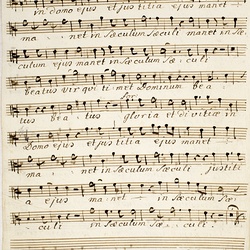 in domo ejus et justitia ejus manet
ma net in sæculum sæculi manet in sæ
culum ejus manet in sæ culi
beatus vir qui timet Dominum bea
for:
tus bea tus gloria et divitiæ in
Domo ejus et justitia ejus manet
ma net in sæculum sæculi justiti
a ejus ma net in sæculum
culi in sæ culi